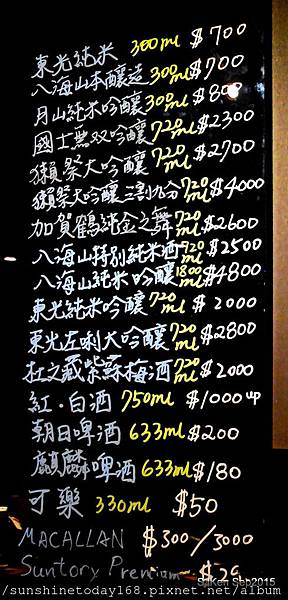 東光純米 300ml $700
八海山本釀造 300ml $700
月山純米吟釀 300ml $800
國士無双吟釀 720ml $2300
獺祭大吟釀 720ml $2700
獺祭大吟釀三割九分 720ml $4000
加賀鶴純金之舞 720ml $2600
八海山特別純米酒 720ml $2500
八海山純米吟釀 1800ml $4800
東光純米吟釀 720ml $2000
東光左唎大吟釀 720ml $2800
杜之藏紫蘇梅酒 720ml $2000
紅.白酒 750ml $1000up
朝日啤酒 633ml $200
麒麟啤酒 633ml $180
可樂 330ml $50
MACALLAN $300/3000
Suntory Premium
SaKen Sep2015
/sunshinetoday168.pixnet.net/album